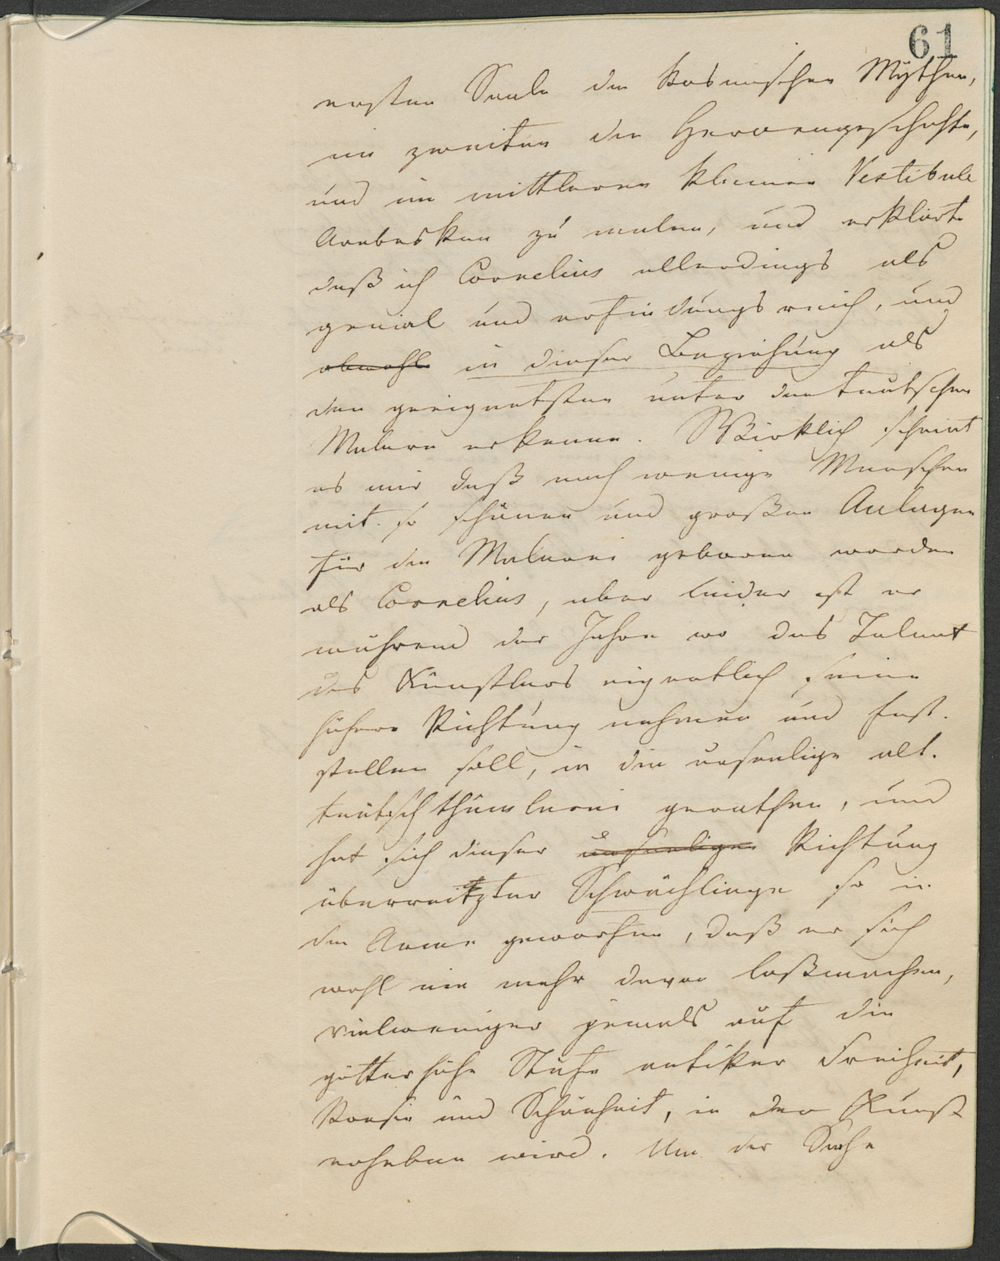 61
ersten Saale die kosmischen Mÿthen,
im zweiten die Heroengeschichte,
und im mittleren kleinen Vestibule
Arabesken zu malen, und erklärte
daß ich Cornelius allerdings als
genial und erfindungsreich, und
obwohl in dieser Beziehung als
den geeignetsten unter den teutschen
Malern erkenne. Wirklich scheint
es mir daß noch wenige Menschen
mit so schönen und großen Anlagen
für die Malerei geboren worden
als Cornelius, aber leider ist er
während der Jahre wo das Talent
des Künstlers eigentlich seine
höhere Richtung nehmen und fest-
stellen soll, in die unselige alt-
teutschthümlerei gerathen, und
hat sich dieser unseeligen Richtung
überreitzter Schwächlinge so in
die Arme geworfen, daß er sich
wohl nie mehr davon loßmachen,
vielweniger jemals auf die
götterhohe Stufe antiker Freiheit,
Poesie und Schönheit, in der Kunst
erheben wird. Um der Sache